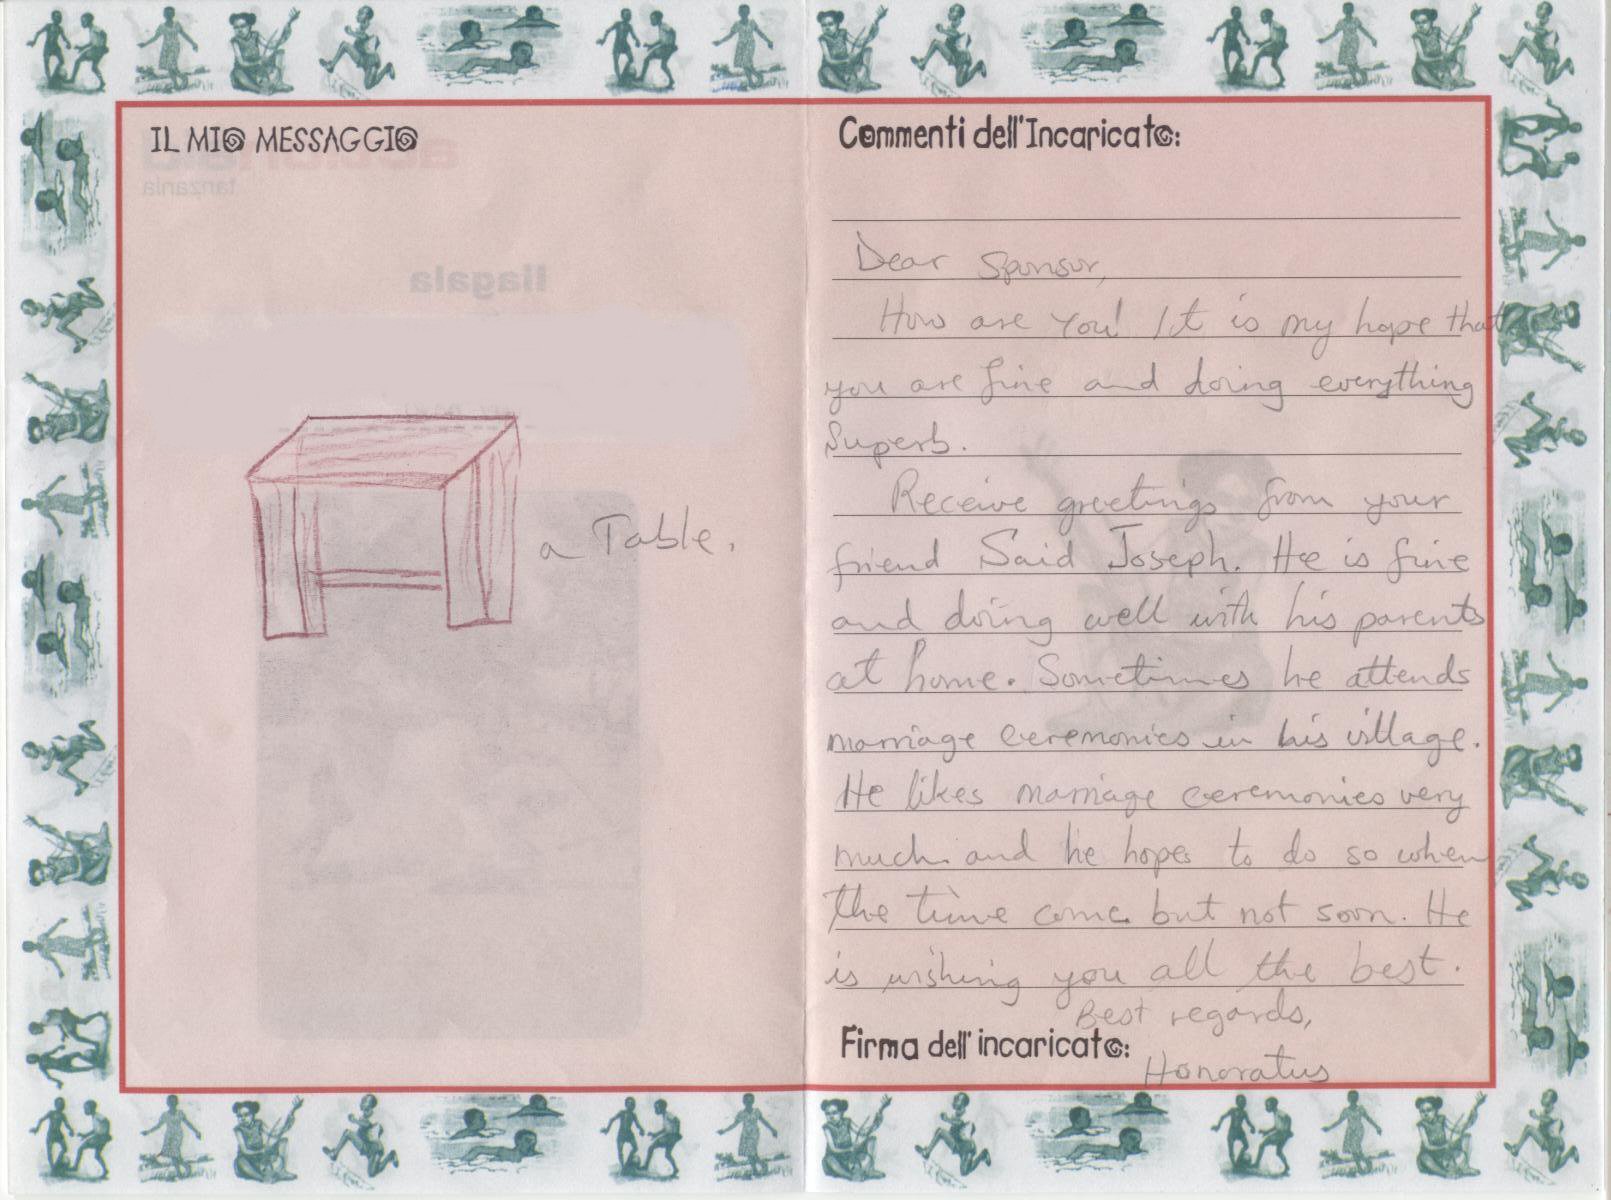 IL MIO MESSAGGIO
a Table.
Commenti dell'Incaricato:
Dear Sponsor,
How are you! It is my hope that
you are fine and doing everything
Superb.
Receive greetings from your
friend Said Joseph. He is fine
and doing well with his parents
at home. Sometimes he attends
marriage ceremonies in his village.
He likes marriage ceremonies very
much and he hopes to do so when
the time come but not soon. He
is wishing you all the best.
Best regards,
Firma dell'incaricato:
Honoratus
tanzania
Ilagala